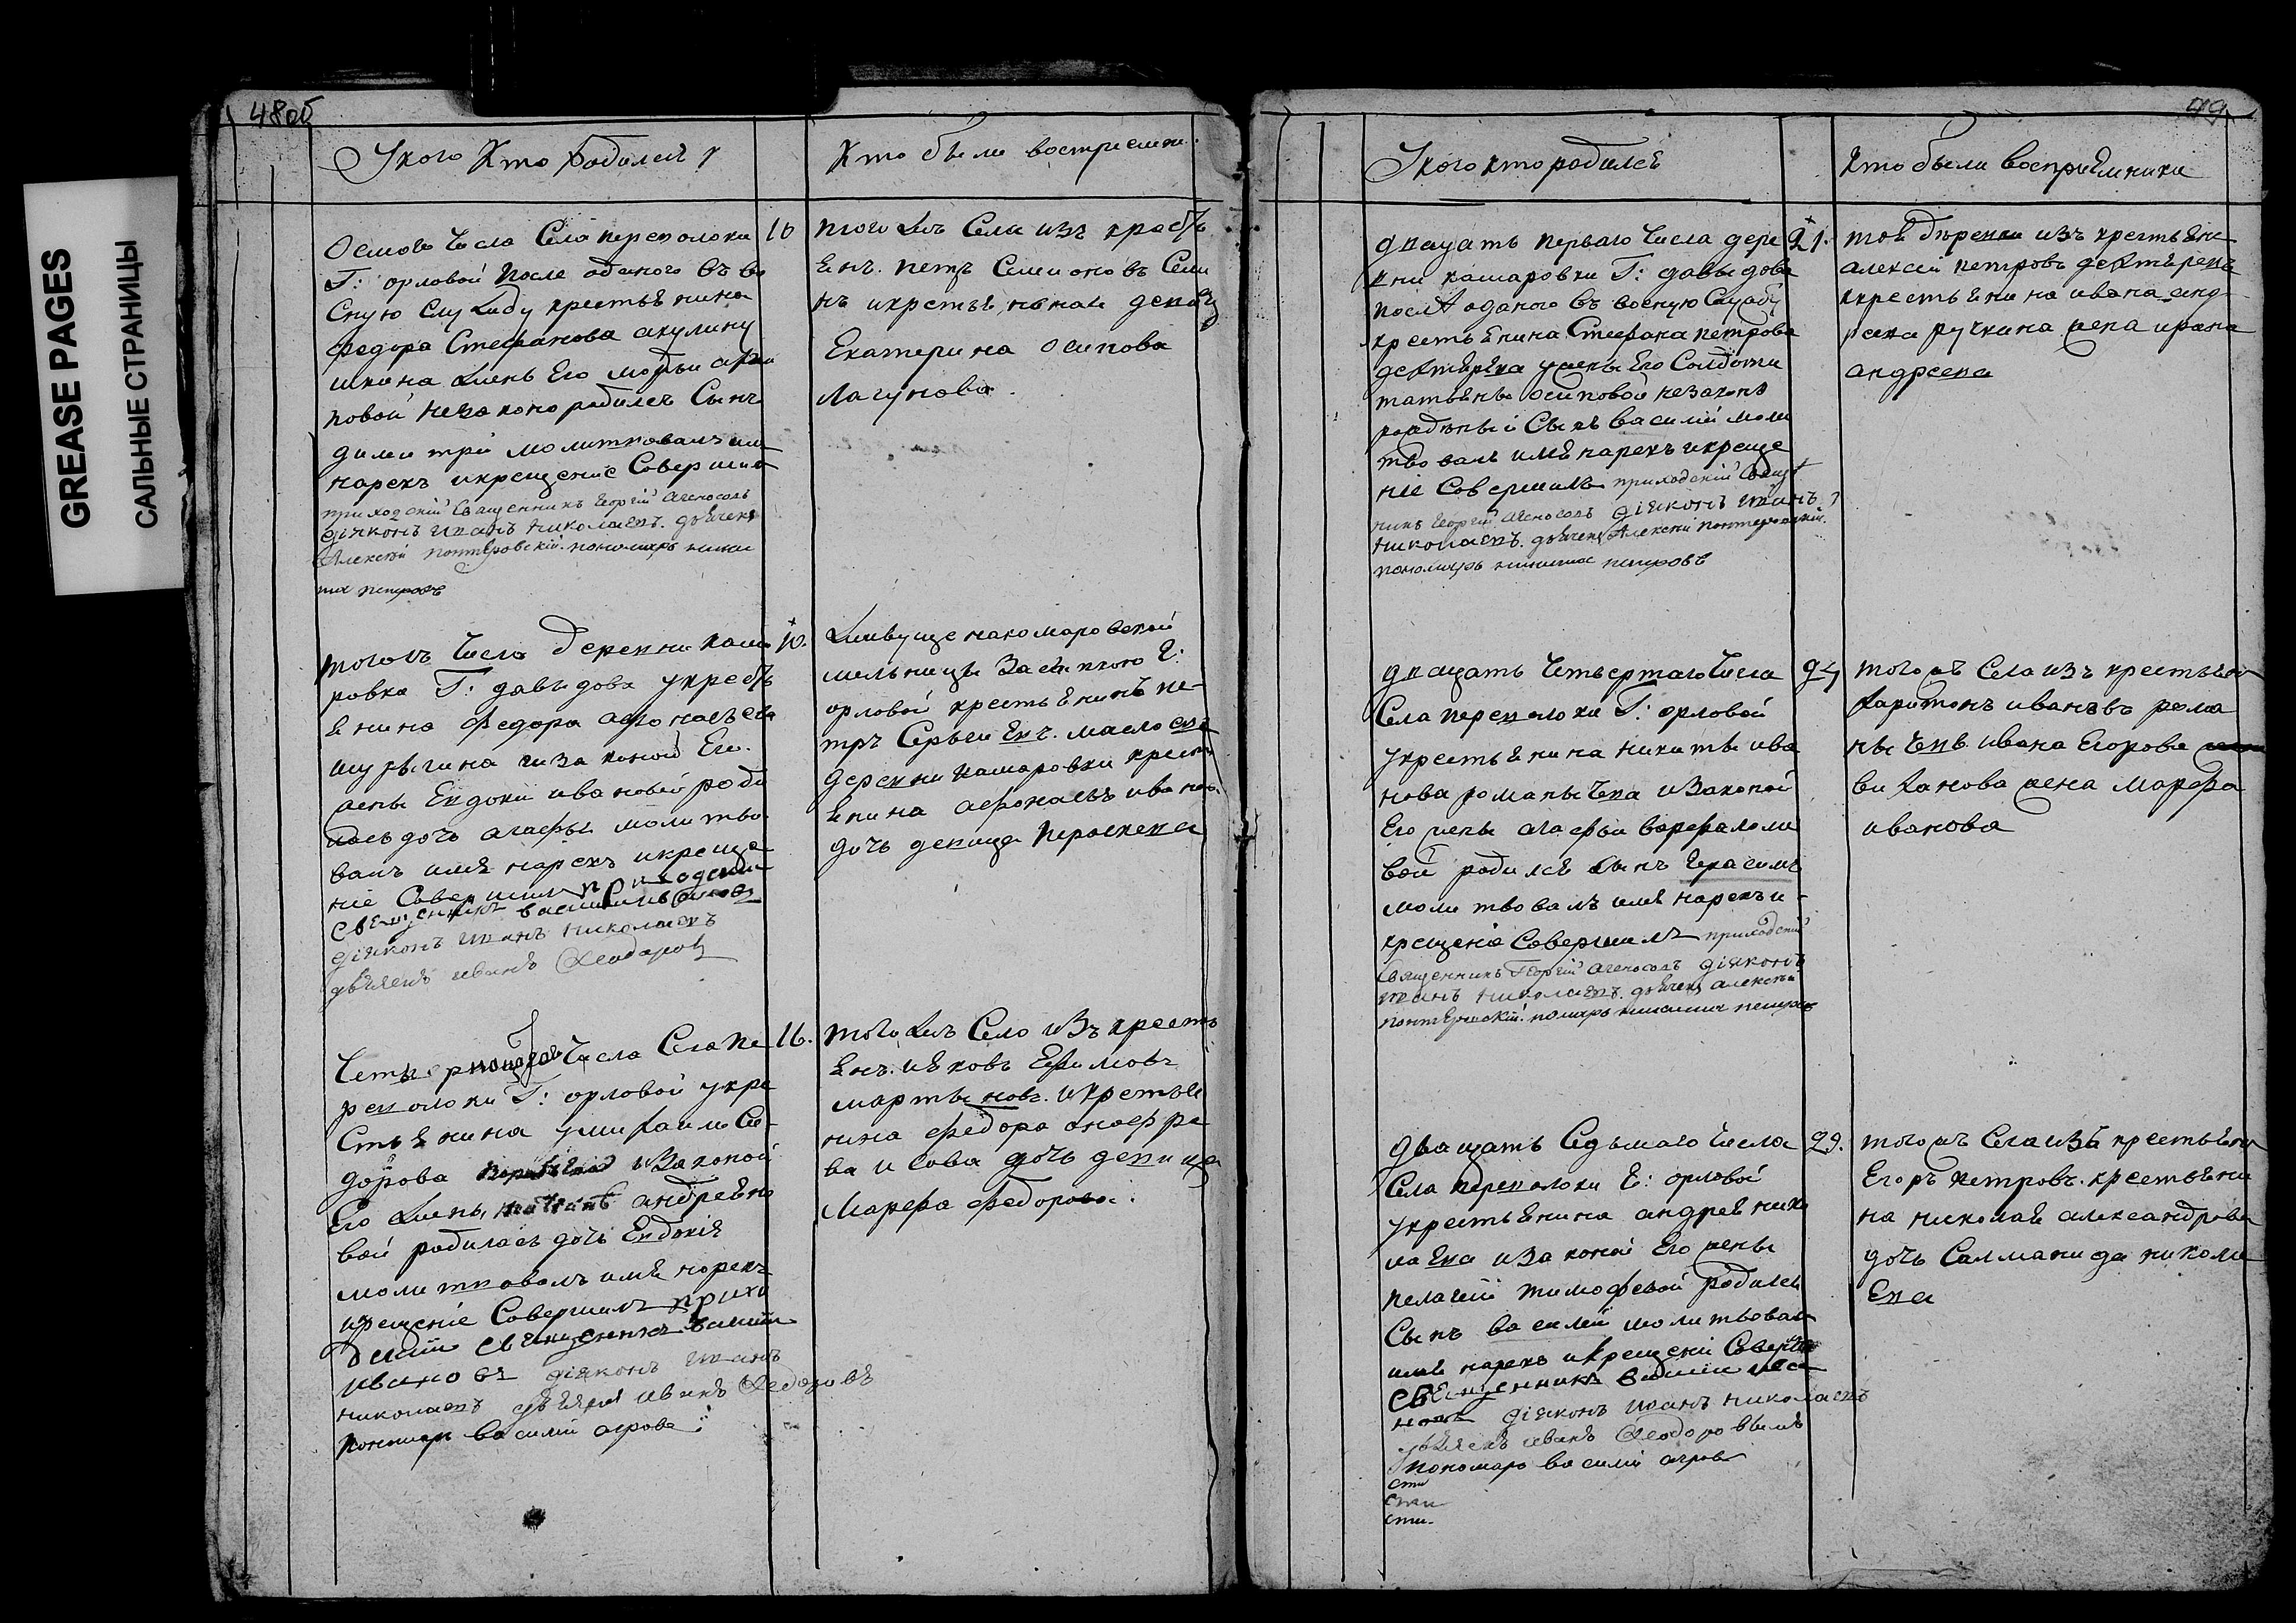 GREASE PAGES
САЛЬНЫЕ СТРАНИЦЫ
48об
У кого Кто родился
Кто были
Осмого Числа Села переволоки
Г: орловой После оданого въ во
Сную Службу крестьянина
федора Стефанова акулину
шкина жены Его
повой Незаконо родился Сынъ
димитрй молитвовалъ имя
нарекъ икрещение Совершилъ
приходскiй Священникъ Георгiй
дiяконъ Иванъ Николаевъ. дьячекъ
Алексѣй пономарь ники
та петровъ
10
тогожъ Села изъ крестьѧ
Енъ. петръ Семионовъ Сели
нъ икрестьянина девица
Екатерина Осипова
Лагунова
тогожъ Числа деревни кама
ровки Г: давыдова укресть
янина федора афонасьева
шурыгина изаконой Его
жены Евдокии ивановой роди
лась дочь агафья молитво
валъ имя нарекъ икреще
ние Совершилъ приходский
священникъ василий ивановъ
дiяконъ Иванъ Николаевъ
дьячекъ иванъ Феодоровъ
10.
Живуще накомаровской
мельнице Г:
орловой крестьянинъ пе-
тръ Сергеи Евъ.
деревни камаровки крест
янина афонасья иванова
дочь девица Парасковья
Четырнацатаго Числа Села Пе
револоки Г: орловой укре
Стьянина умихаила Си-
дорова изаконой
Его жены андреяно
вой родилась дочь Евдокiя
молитвовалъ имя нарекъ
икрещенiе Совершилъ прихо
дский священникъ василий
ивановъ дiяконъ Иванъ
николаевъ дьячекъ иванъ Феодоровъ
пономарь василий
16.
тогожъ Село изъ кресть
Енъ. иаковъ Ефимовъ
мартыновъ. икрестья
нина федора
ва исова дочь девица
Марфа федорова.
49
У кого кто родился
Кто были восприемники
двацать перваго Числа дере
вни камаровки Г: давыдова
после оданого въ военую Службу
крестьянина Стефана петрова
дехтярева жены Его Солдатки
татьяны Осиповой незаконо
рожденый Сынъ василий моли
твовалъ имя нарекъ икреще
нiе Совершилъ приходскiй Свяще
никъ Георгiй дiяконъ Иванъ
Николаевъ. дьячекъ Алексѣй
пономарь никита петровъ
21.
той деревни изъ крестьянъ
алексей петровъ дехтяревъ
икрестьянина ивана анд
реева ручкина жена ирина
андреева
двацать Четвертаго Числа
Села переволоки Г: орловой
укрестьянина никиты ива
нова романычева изаконой
Его жены агафьи варфаломи
вой родился сынъ герасимъ
молитвовалъ имя нарекъ и-
крещение Совершилъ приходскiй
Священникъ Георгiй дiяконъ
Иванъ Николаевъ. дьячекъ алексѣй
никита петровъ
24
тогожъ Села изъ крестьянъ
харитонъ ивановъ рома
нычевъ ивана Егорова
виханова жена марфа
иванова
двацать Седьмаго Числа
Села переволоки Г: орловой
укрестьянина андрея нико
лаЕва изаконой Его жены
пелагии тимофевой родился
Сынъ василий молитвовалъ
имя нарекъ икрещении Совершилъ
священникъ василий ива
новъ дiяконъ Иванъ николаевъ
дьячекъ иванъ Феодоровъ
пономарь василий
29.
тогожъ Села изъ крестьянъ
Егоръ петровъ. крестьяни
на николая александрова
дочь Салманида никола
Ева